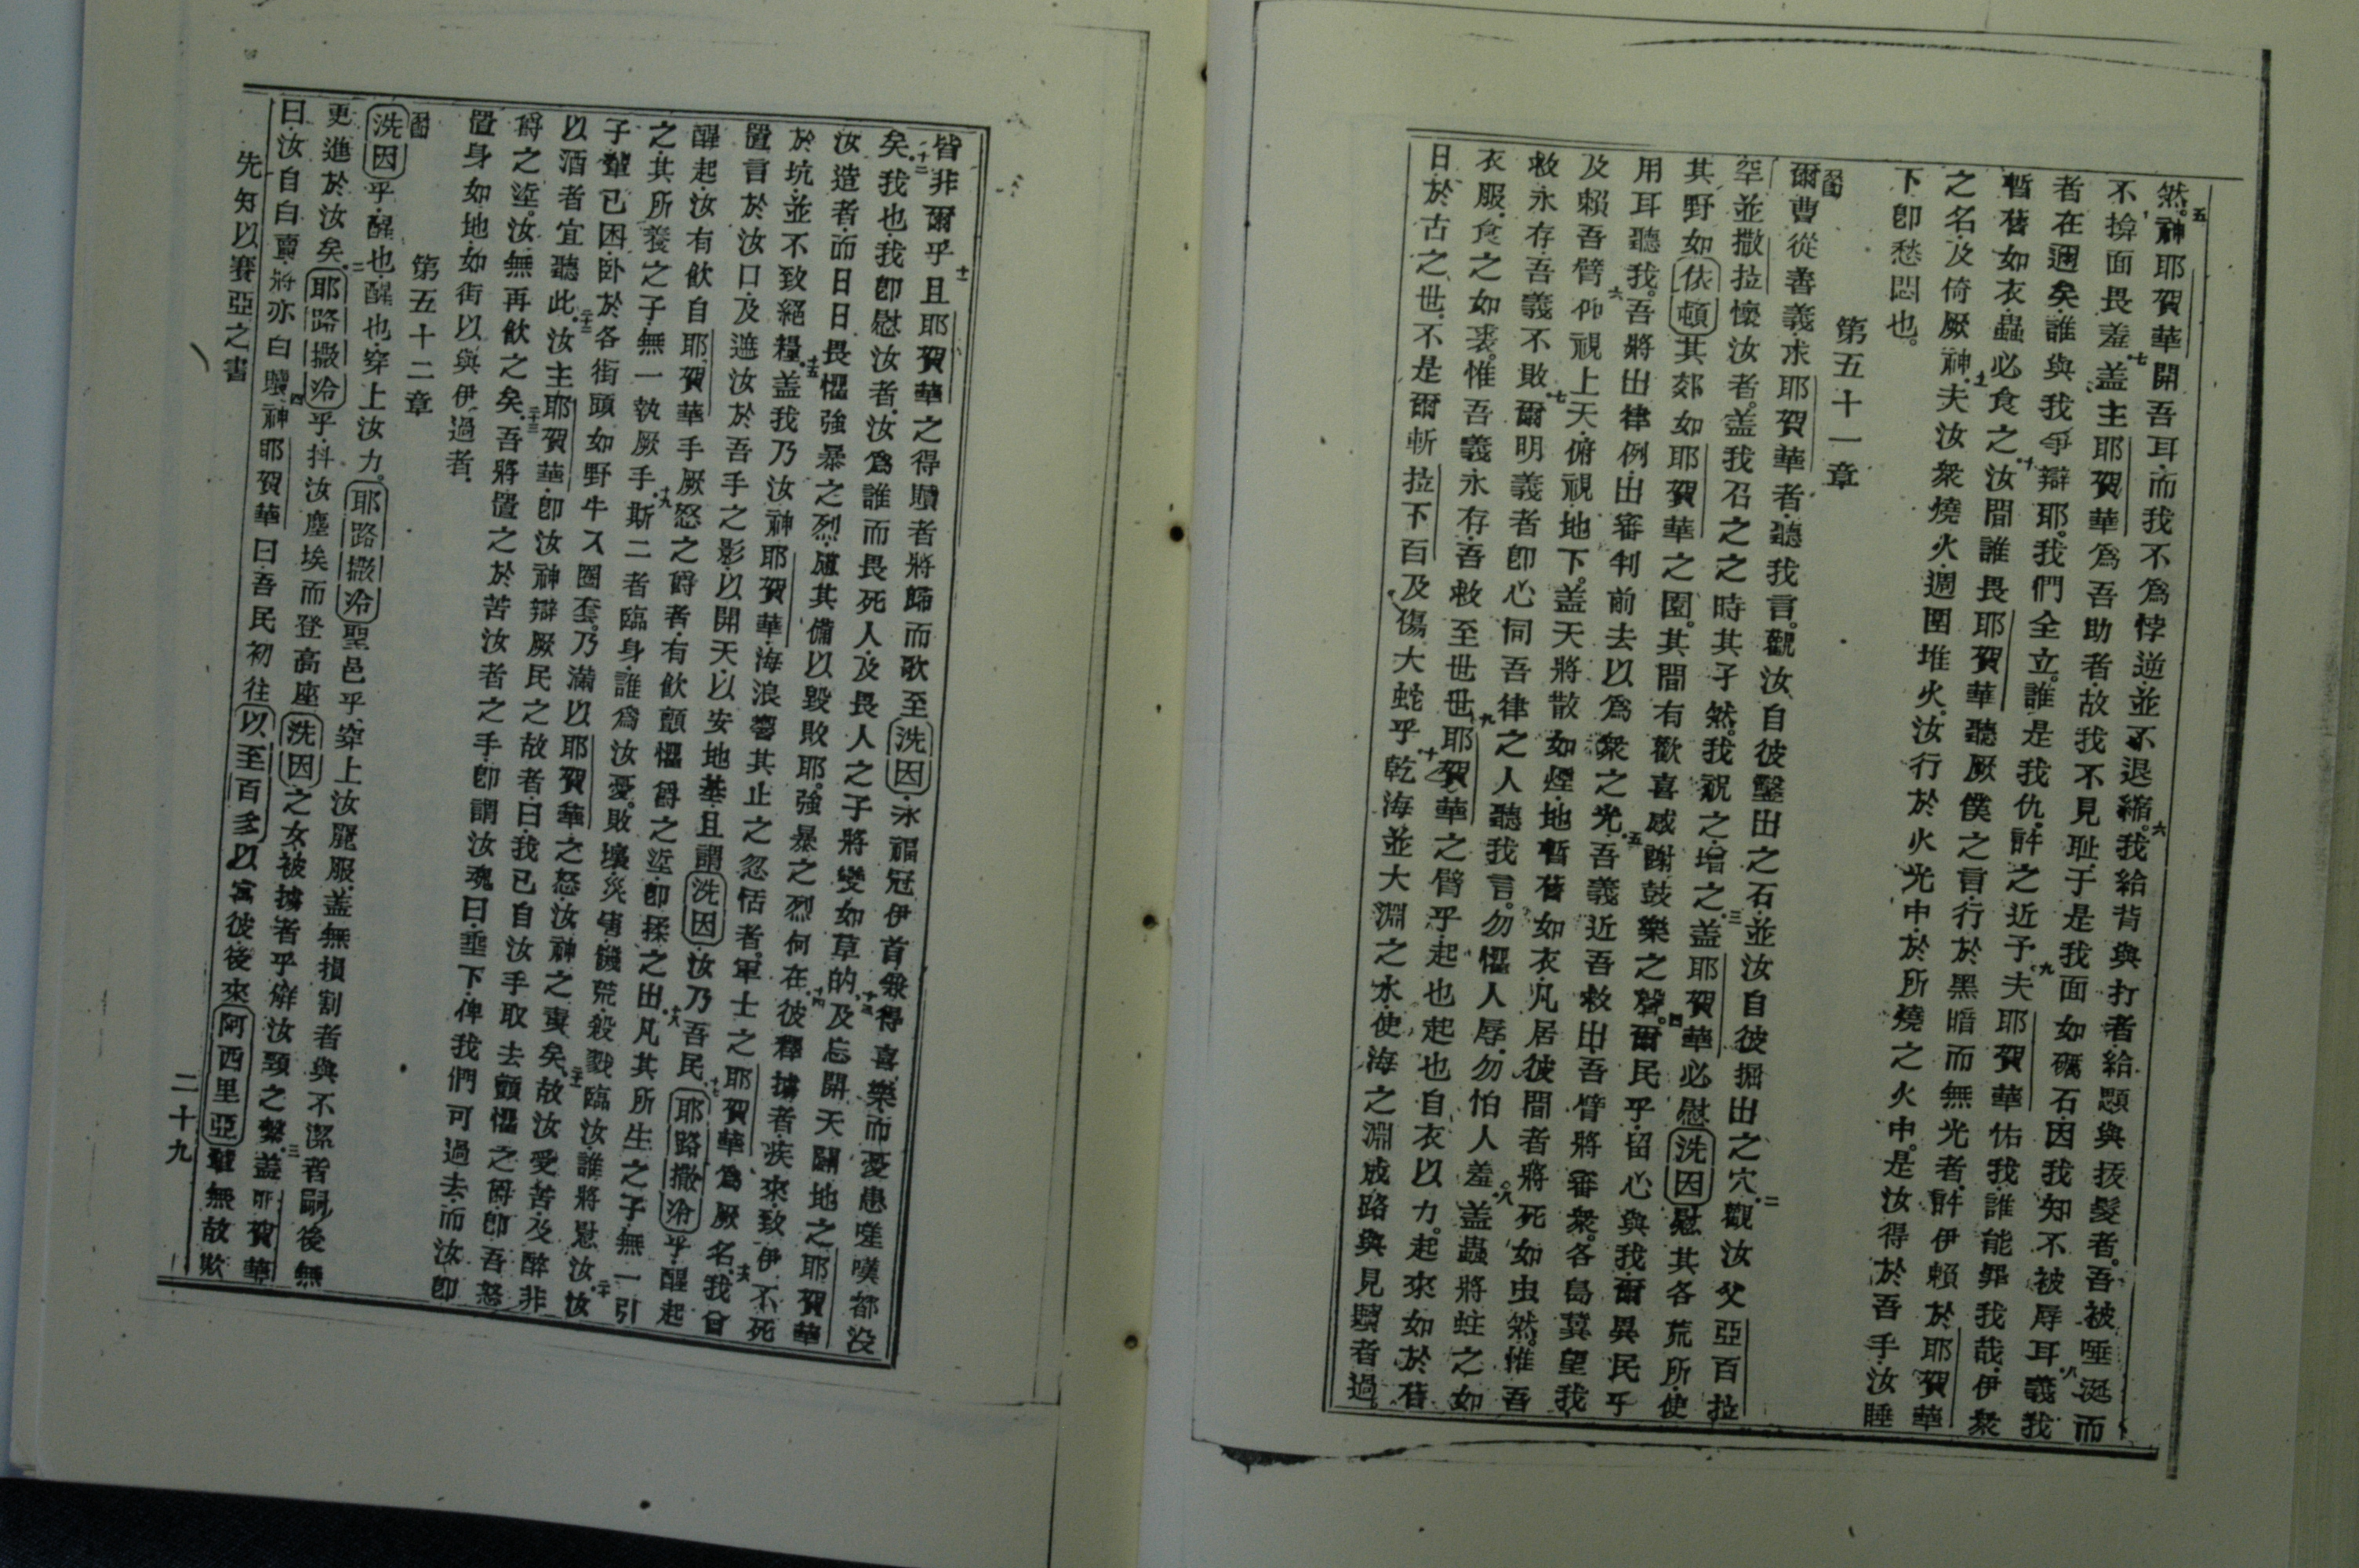 然神耶賀華開吾耳而我不爲悖逆並不退縮我給背與打者給題與拔髮者吾被唾涎而
不掉面畏羞盖主耶賀華爲吾助者故我不見耻于是我面如礪石因我知不被辱耳義我
者在邇矣誰與我爭辯耶我們全立誰是我仇許之近予夫耶賀華佑我誰能罪我哉伊衆
暫舊如衣蟲必食之汝間誰畏耶賀華聽厥僕之言行於黑暗而無光者許伊賴於耶賀華
之名及倚厥神夫汝衆燒火週圍堆火汝行於火光中於所燒之火中是汝得於吾手汝睡
下卽愁悶也
第五十一章
爾曹從善義求耶賀華者聽我言觀汝自彼鑿出之石並汝自彼掘出之穴觀汝父亞百拉
罕並撒拉懷汝者盖我召之之時其孑然我祝之增之盖耶賀華必慰洗因慰其各荒所使
其野如依頓其郊如耶賀華之園其間有歡喜感謝鼓樂之聲爾民乎留心與我爾異民乎
用耳聽我吾將出律例出審判前去以爲衆之光吾義近吾救出吾臂將審衆各島冀望我
及賴吾臂仰視上天俯視地下盖天將散如煙地暫舊如衣凡居彼間者將死如虫然惟吾
救永存吾義不敗爾明義者卽心伺吾律之人聽我言勿懼人辱勿怕人羞盖蟲將蛀之如
衣服食之如裘惟吾義永存吾救至世世耶賀華之臂乎起也起也自衣以力起來如於舊
日於古之世不是爾斬拉下百及傷大蛇乎乾海並大淵之水使海之淵成路與見贖者過
皆非爾乎且耶賀華之得贖者將歸而歌至洗因永福冠伊首衆得喜樂而憂患嗟嘆都沒
矣我也我卽慰汝者汝爲誰而畏死人及畏人之子將變如草的及忘開天闢地之耶賀華
汝造者而日日畏懼強暴之烈爐其備以毀敗耶強暴之烈何在彼釋擄者疾來致伊不死
於坑並不致絕糧盖我乃汝神耶賀華海浪響其止之忽恬者軍士之耶賀華爲厥名我曾
置言於汝口及遮汝於吾手之影以開天以安地基且謂洗因汝乃吾民耶路撒冷乎醒起
醒起汝有飮自耶賀華手厥怒之爵者有飮顫懼爵之渣卽揉之出凡其所生之子無一引
之其所養之子無一執厥手斯二者臨身誰爲汝憂敗壞災害饑荒殺戮臨汝誰將慰汝汝
子輩已困卧於各街頭如野牛入圈套乃滿以耶賀華之怒汝神之責矣故汝受苦及醉非
以酒者宜聽此汝主耶賀華卽汝神辯厥民之故者曰我已自汝手取去顫懼之爵卽吾怒
爵之渣汝無再飮之矣吾將置之於苦汝者之手卽謂汝魂曰垂下俾我們可過去而汝卽
置身如地如街以與伊過者
第五十二章
洗因乎醒也醒也穿上汝力耶路撒冷聖邑乎穿上汝麗服盖無損割者與不潔者嗣後無
更進於汝矣耶路撒冷乎抖汝塵埃而登高座洗因之女被擄者乎解汝頸之繫盖耶賀華
曰汝自白賣將亦白贖神耶賀華曰吾民初往以至百多以寓彼後來阿西里亞輩無故欺
先知以賽亞之書
二十九